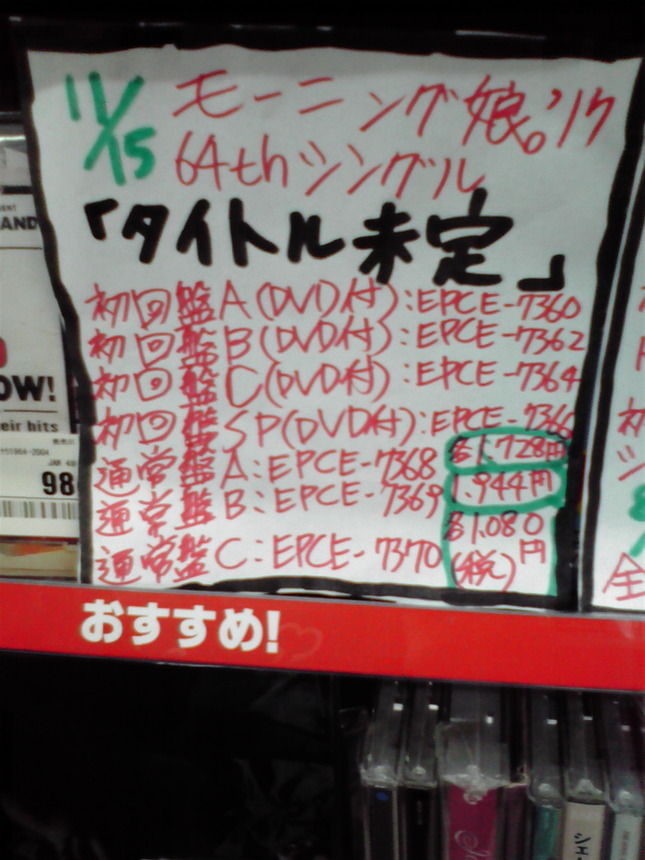 11/15 モーニング娘。'17
64thシングル
「タイトル未定」
初回盤A(DVD付):EPCE-7360
初回盤B(DVD付):EPCE-7362
初回盤C(DVD付):EPCE-7364
初回盤SP(DVD付):EPCE-7366
各1.728円
通常盤A:EPCE-7368
1.944円
通常盤B:EPCE-7369
各1.080円
通常盤C:EPCE-7370
(税)
おすすめ!
AND
OW!
eir hits
98
全
シェ